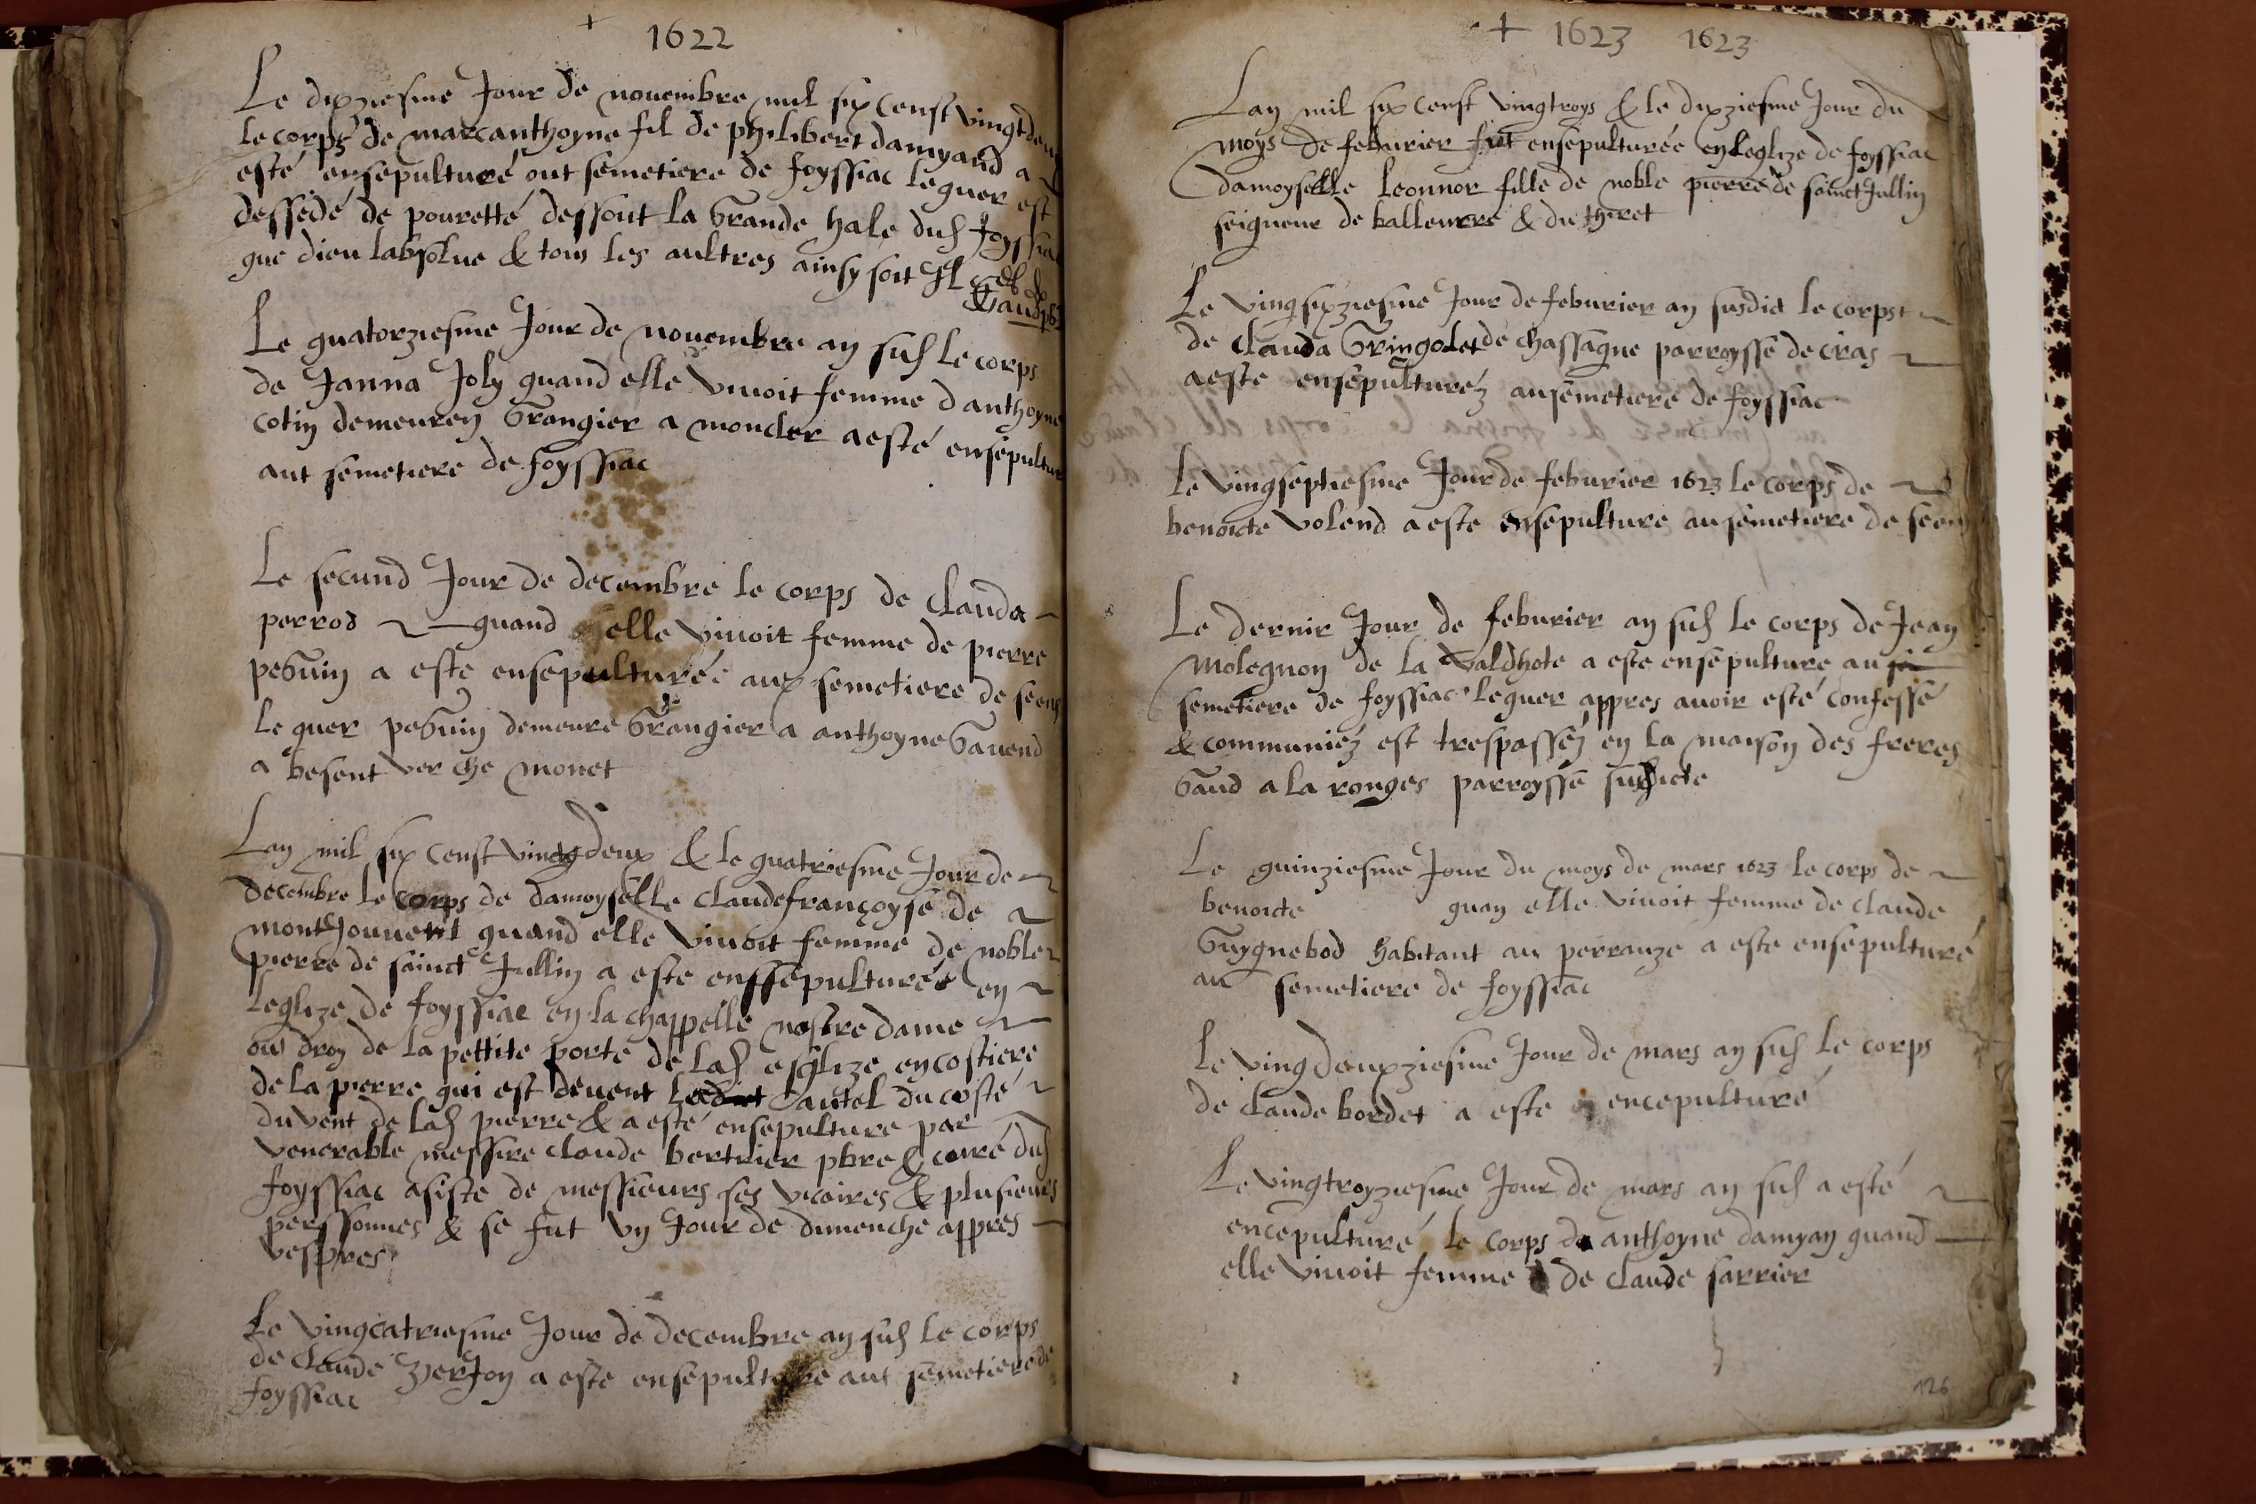 1622
Le dixziesme Jour de nouembre mil six censt vingtdeu
le corps de marcanthoyne fil de philibert damyand a
esté ensepulturé out semetiere de foyssiac lequer est
dessedé de pouretté dessout la Grande hale dud foyssia
que dieu labsolue & tous les aultres ainsy soit Il
Le quatorziesme Jour de nouembre an sud le corps
de Janna Joly quand elle viuoit femme d anthoyne
cotin demeuren Grangier a moncler a esté ensepultur
aut semetiere de foyssiac
Le secund Jour de decembre le corps de clauda
perrod quand elle viuoit femme de pierre
peGuin a este ensepulturée aux semetiere de seens
le quer peGuin demeure Grangier a anthoyne Gauend
a besent ver che monet
Lan mil six censt vingtdeux & le quatriesme Jour de
decembre le corps de damoyselle claudefrançoyse de
montJouuent quand elle viuoit femme de noble
pierre de sainct Jullin a este enssepulturée en
leglize de foyssiac en la chappelle nostre dame
ou droy de la pettite porte de lad esglize en costiere
de la pierre qui est deuent ledict lautel du costé
du vent de lad pierre & a esté ensepulture par
venerable messire claude bertrier pbre & curé dud
foyssiac asisté de messieurs ses vicaires & plusieurs
perssonnes & se fut vn Jour de dimenche appres
vespres
Le vingcatriesme Jour de decembre an sud le corps
de claude zerJon a este ensepulture aut semetiere de
foyssiac
1623 1623
Lan mil six censt vingtroys & le dixziesme Jour du
moys de feburier fut ensepulturée en leglize de foyssiac
damoyselle leonnor fille de noble pierre de sainct Jullin
seigneur de balleurre & du thiret
Le vingsixziesme Jour de feburier an susdict le corpst
de clauda Gringolet de chassagne parroysse de cras
a este ensepulturéz au semetiere de foyssiac
le vingseptiesme Jour de feburier 1623 le corps de
benoicte volend a este ensepulture au semetiere de seen
Le dernir Jour de feburier an sud le corps de Jean
molegnon de la valdhote a este ensepulture au se
semetiere de foyssiac lequer appres auoir esté confessé
& communiéz est trespasséz en la maison des freres
Gaud a la ronges parroysse susdicte
Le quinziesme Jour du moys de mars 1623 le corps de
benoicte quan elle viuoit femme de claude
Guygnebod habitant au perranze a este ensepulturé
au semetiere de foyssiac
Le vingdeuxziesme Jour de mars an sud le corps
de claude bordet a este encepulturé
Le vingtroyziesme Jour de mars an sud a esté
encepulturé le corps de anthoyne damyan quand
elle viuoit femme de claude sarrier
126